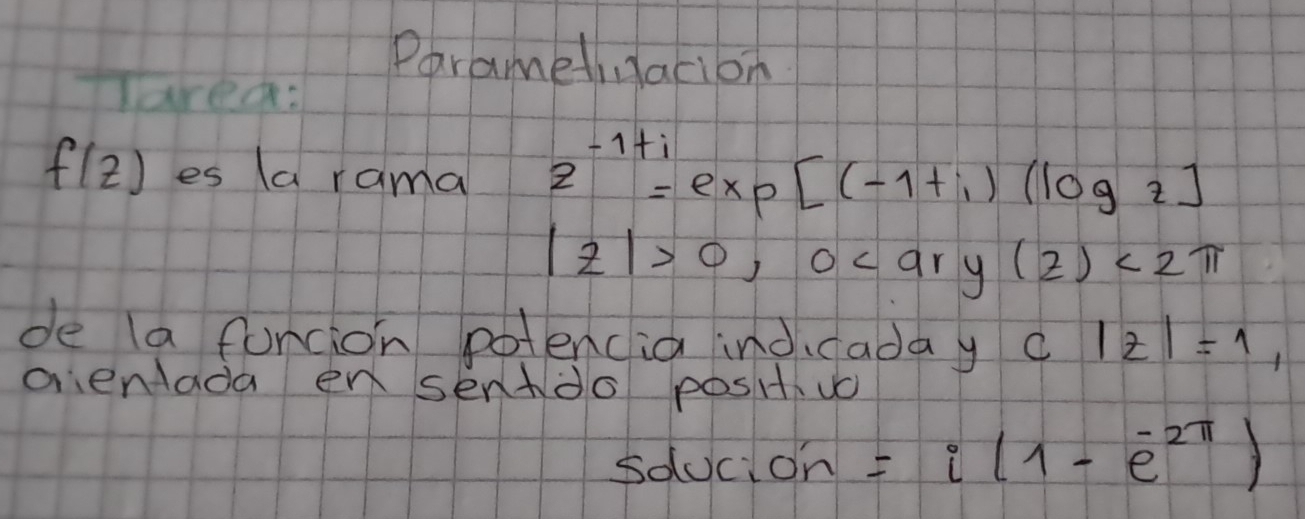 Parametrización
Tarea:
f(z) es la rama z^{-1+i} = exp[(-1+i)(log z]
|z| > 0, 0 < arg (z) < 2π
de la función potencia indicada y C |z| = 1,
orientada en sentido positivo
solución = i(1 - e^{-2π})